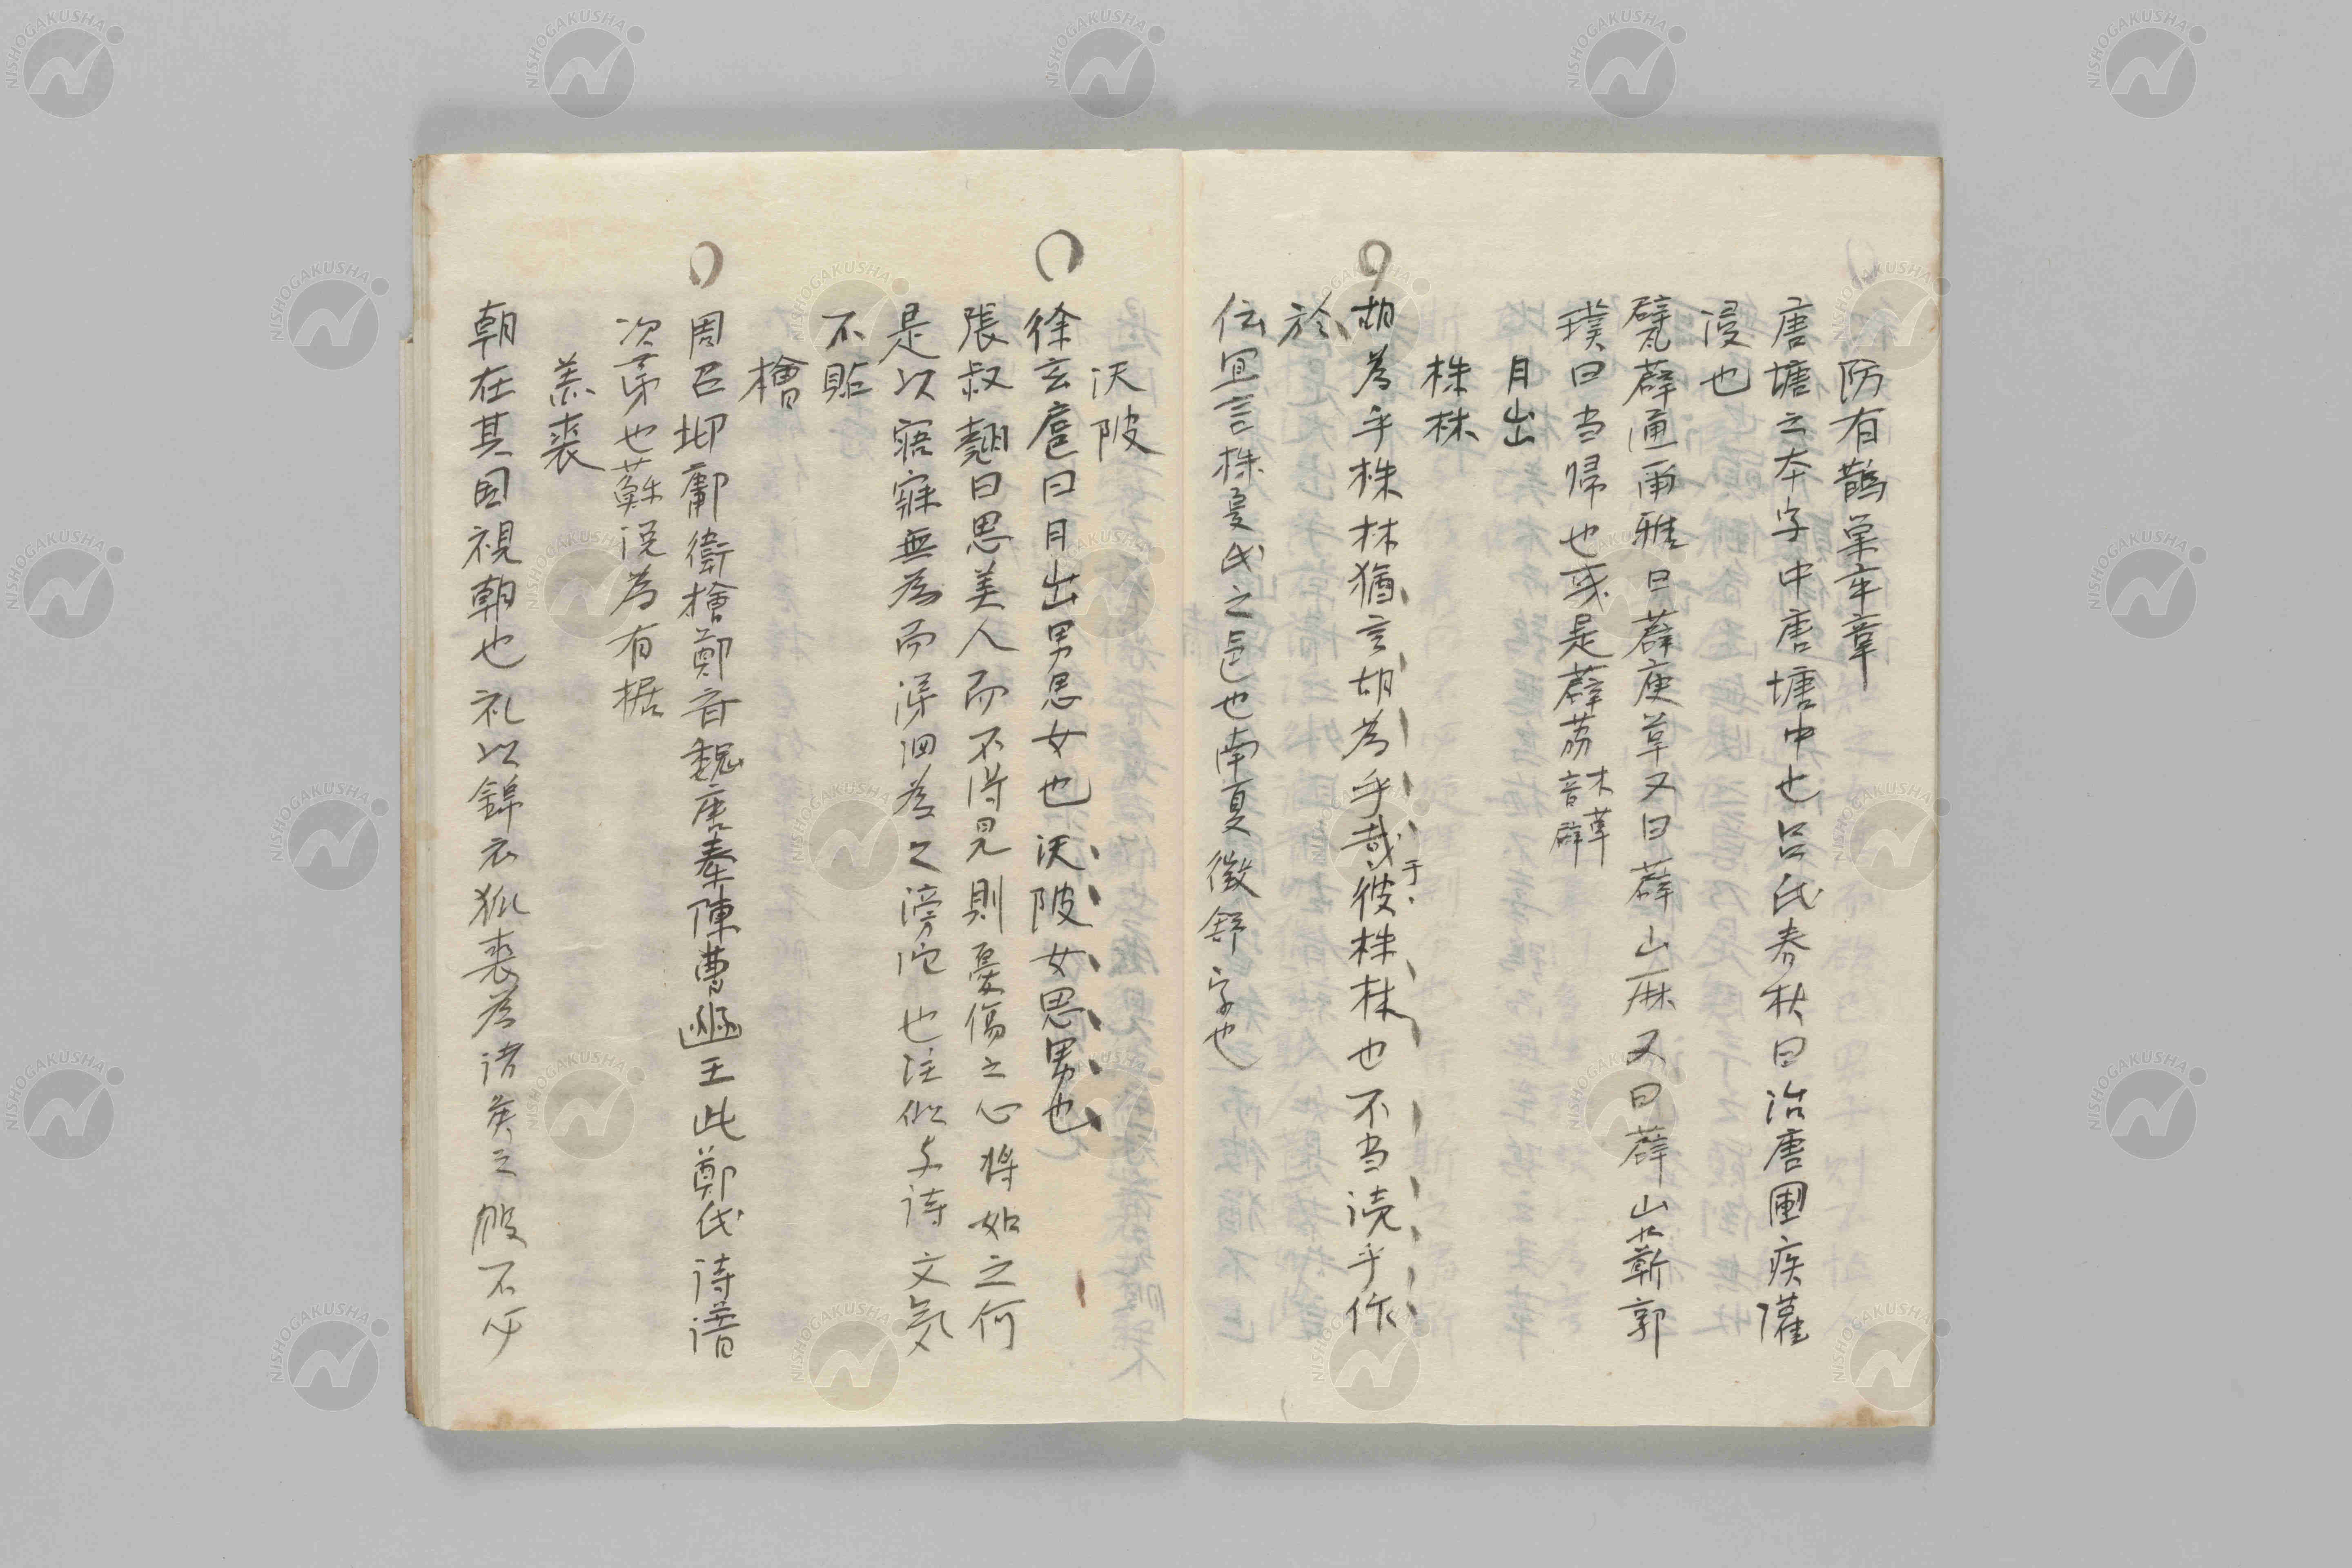 防有鵲巣卒章
唐塘之本字中唐塘中也呂氏春秋曰治唐圃疾灌
浸也
甓薜通爾雅曰薜庚草又曰薜山麻又曰薜山蘄郭
璞曰当帰也或是薜荔 木草音薜
月出
株林
胡為乎株林猶言胡為乎哉于彼株林也不当読乎作
於
伝宜言株夏氏之邑也南夏徴舒字也
沢陂
徐玄扈曰月出男思女也沢陂女思男也
張叔翹曰思美人而不得見則憂傷之心将如之何
是以寤寐無為而涕泗為之滂沱也注似与詩文気
不貼
檜
周召邶鄘衛檜鄭斉魏唐秦陳曹豳王此鄭氏詩譜
次第也蘇説為有据
羔裘
朝在其国視朝也礼以錦衣狐裘為諸侯之服不必
NISHOGAKUSHA